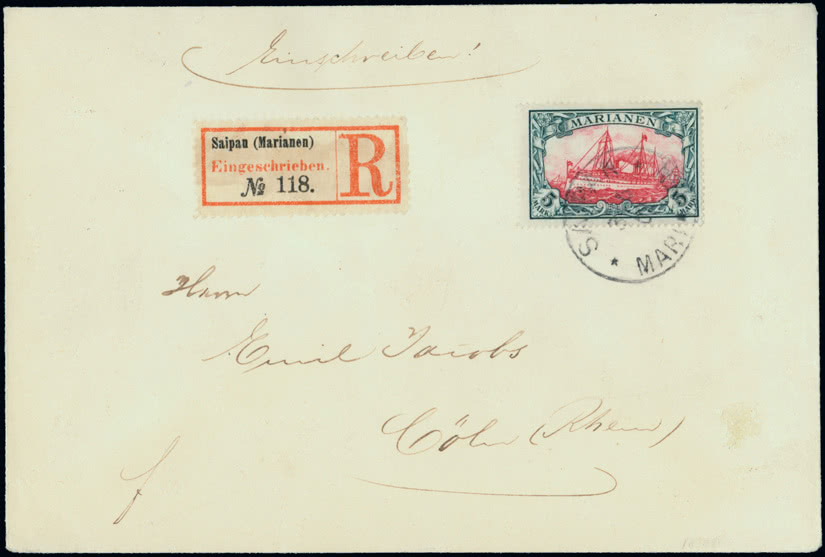 Einschreiben!
Saipan (Marianen)
Eingeschrieben.
№ 118.
R
MARIANEN
5 MARK 5 MARK
MARI
Herrn
Emil Jacobs
Cöln (Rhein)